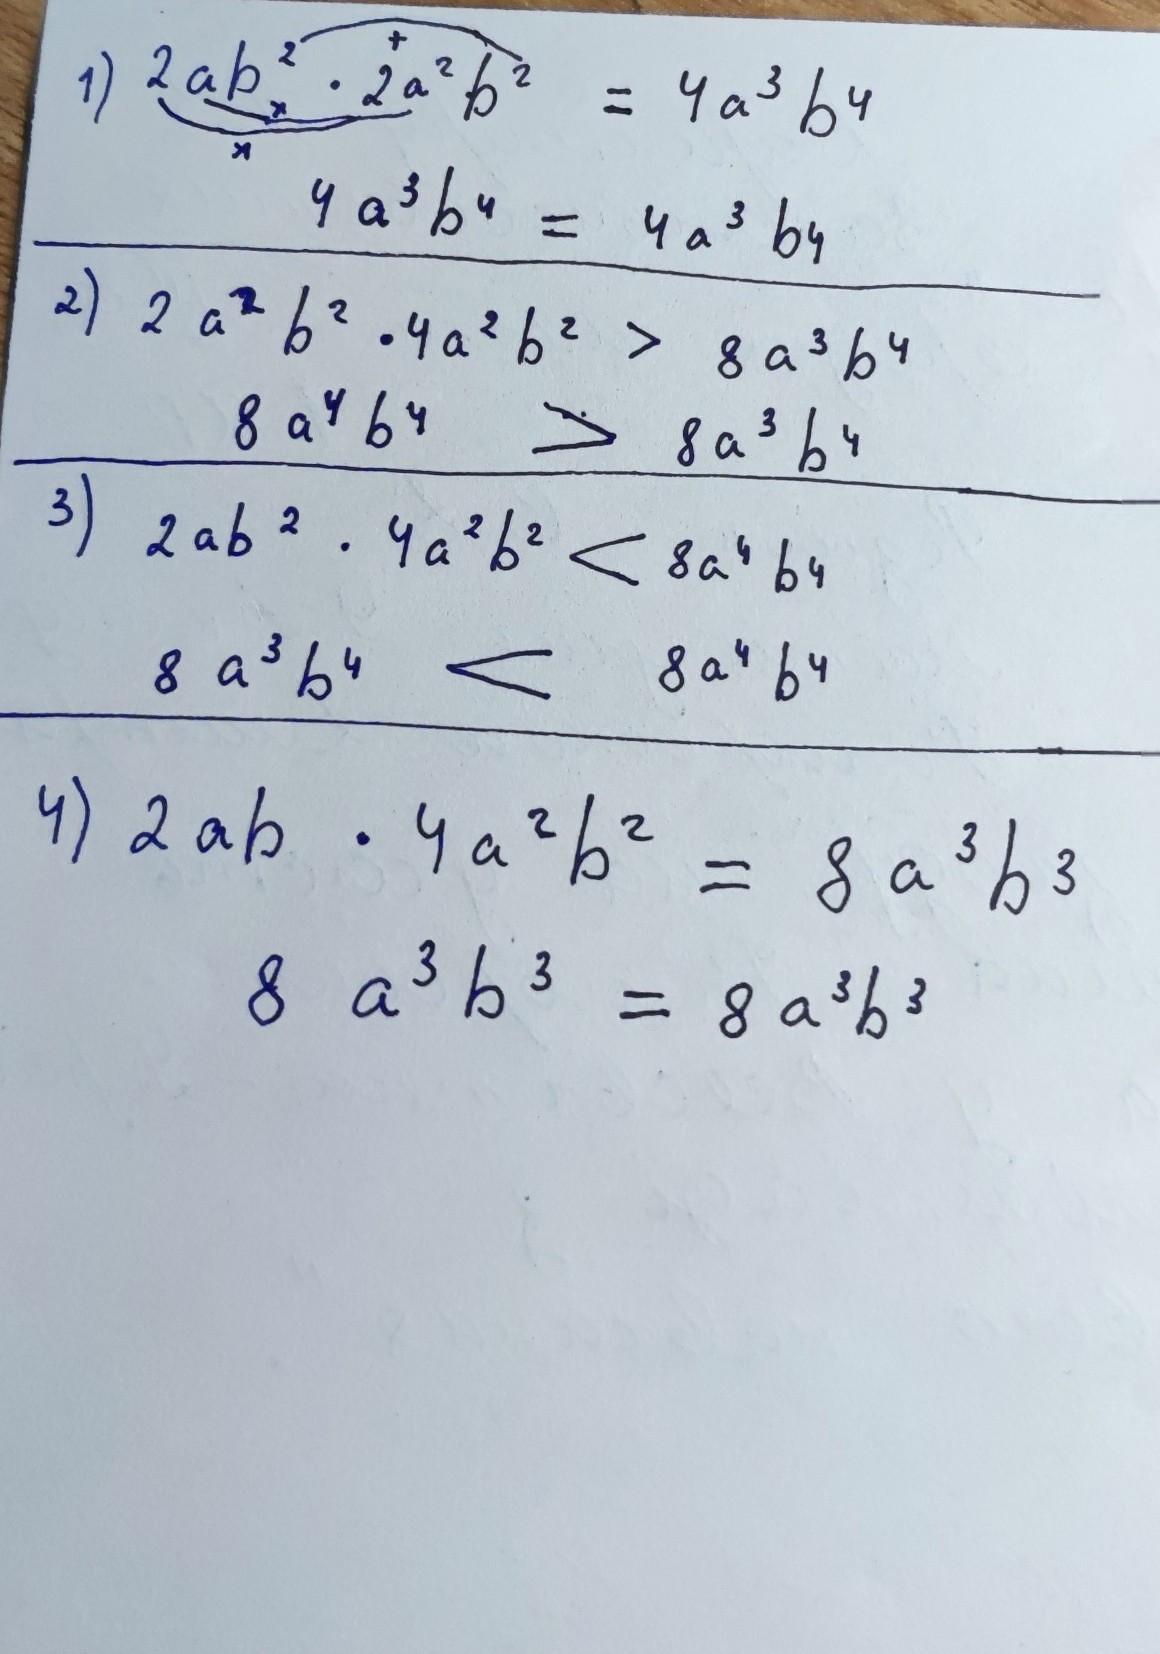 1) 2ab² · 2a²b² = 4a³b⁴
+
x
x
4a³b⁴ = 4a³b⁴
2) 2a²b² · 4a²b² > 8a³b⁴
8a⁴b⁴ > 8a³b⁴
3) 2ab² · 4a²b² < 8a⁴b⁴
8a³b⁴ < 8a⁴b⁴
4) 2ab · 4a²b² = 8a³b³
8a³b³ = 8a³b³